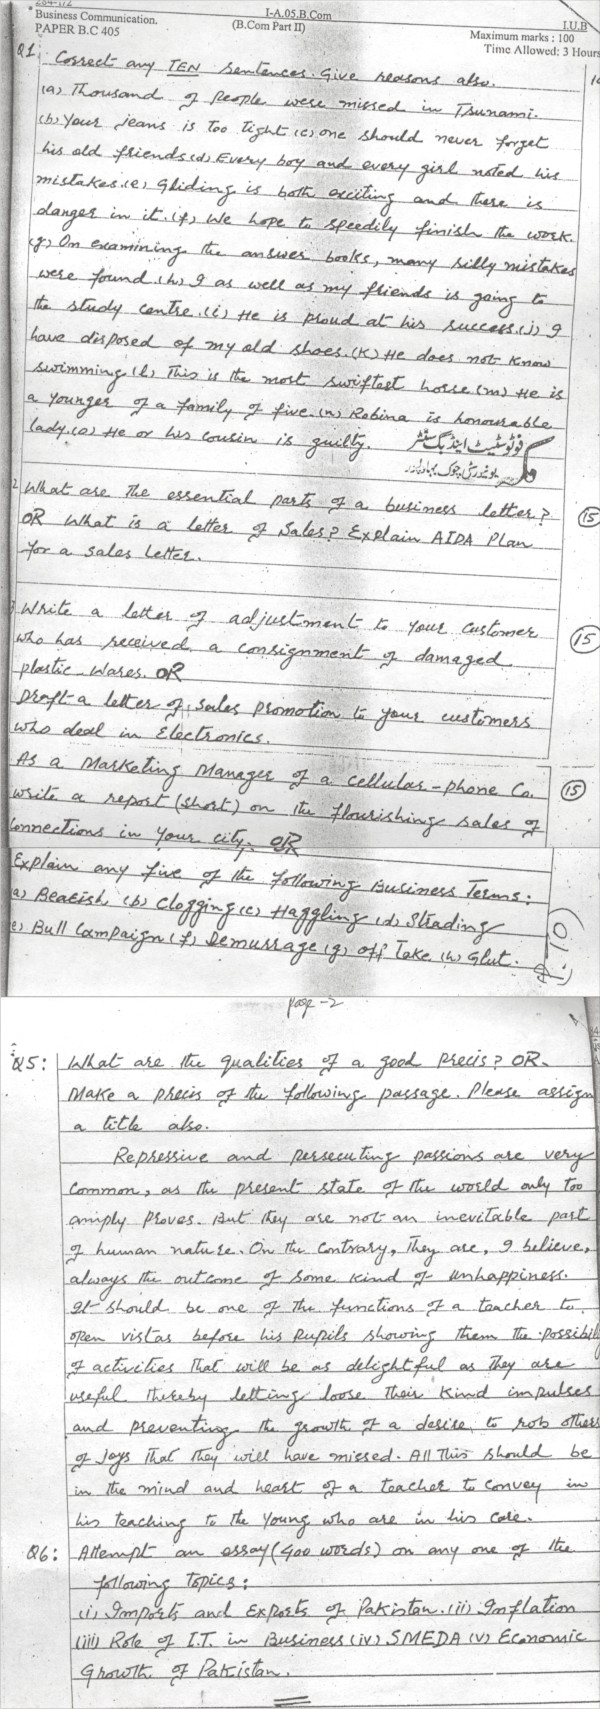 Business Communication.
I-A.05.B.Com
I.U.B
PAPER B.C 405
(B.Com Part II)
Maximum marks : 100
Time Allowed: 3 Hours
Q1 Correct any TEN sentences. Give reasons also.
(a) Thousand of people were missed in Tsunami.
(b) Your jeans is too tight (c) one should never forget
his old friends (d) Every boy and every girl noted his
mistakes. (e) Gliding is both exciting and there is
danger in it. (f) We hope to speedily finish the work.
(g) On examining the answer books, many silly mistakes
were found. (h) I as well as my friends is going to
the study centre. (i) He is proud at his success. (j) I
have disposed of my old shoes. (k) He does not know
swimming (l) This is the most swiftest horse. (m) He is
a younger of a family of five. (n) Robina is honourable
lady. (o) He or his cousin is guilty.
فوٹوسٹیٹ اینڈ بک سنٹر
یونیورسٹی چوک بہاولپور
2 What are the essential parts of a business letter?
OR What is a letter of Sales? Explain AIDA Plan
for a sales letter.
15
3 Write a letter of adjustment to your customer
who has received a consignment of damaged
plastic-wares. OR
15
Draft a letter of sales promotion to your customers
who deal in Electronics.
As a Marketing Manager of a cellular-phone Co.
write a report (short) on the flourishing sales of
connections in your city. OR
15
Explain any five of the following Business Terms:
(a) Bearish (b) Clogging (c) Haggling (d) Strading
(e) Bull Campaign (f) Demurrage (g) off Take (h) Glut.
page -2
Q5: What are the qualities of a good precis? OR
Make a precis of the following passage. Please assign
a title also.
Repressive and persecuting passions are very
common, as the present state of the world only too
amply proves. But they are not an inevitable part
of human nature. On the contrary, they are, I believe,
always the outcome of some kind of unhappiness.
It should be one of the functions of a teacher to
open vistas before his pupils showing them the possibil
of activities that will be as delightful as they are
useful thereby letting loose their kind impulses
and preventing the growth of a desire to rob others
of joys that they will have missed. All this should be
in the mind and heart of a teacher to convey in
his teaching to the young who are in his care.
Q6: Attempt an essay (400 words) on any one of the
following topics:
(i) Imports and Exports of Pakistan. (ii) Inflation
(iii) Role of I.T. in Business (iv) SMEDA (v) Economic
Growth of Pakistan.